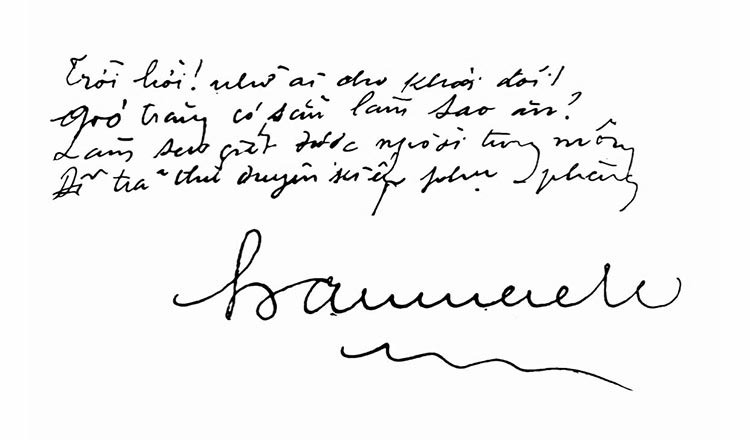 Trời hỡi! nhờ ai cho khỏi đói!
Gió trăng có sẵn làm sao ăn?
Làm sao giết được người trong mộng
Để trả thù duyên kiếp phụ phàng
Hanmactu